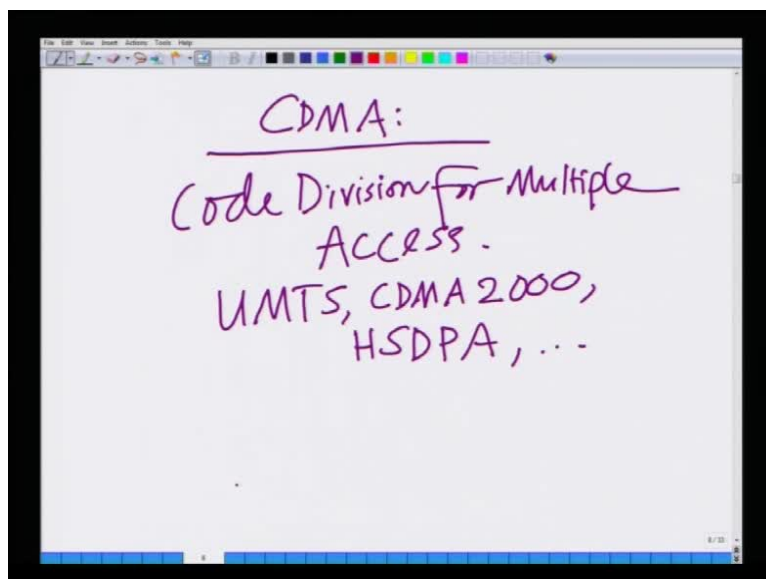 File Edit View Insert Actions Tools Help
CDMA:
Code Division for Multiple
Access.
UMTS, CDMA 2000,
HSDPA, ...